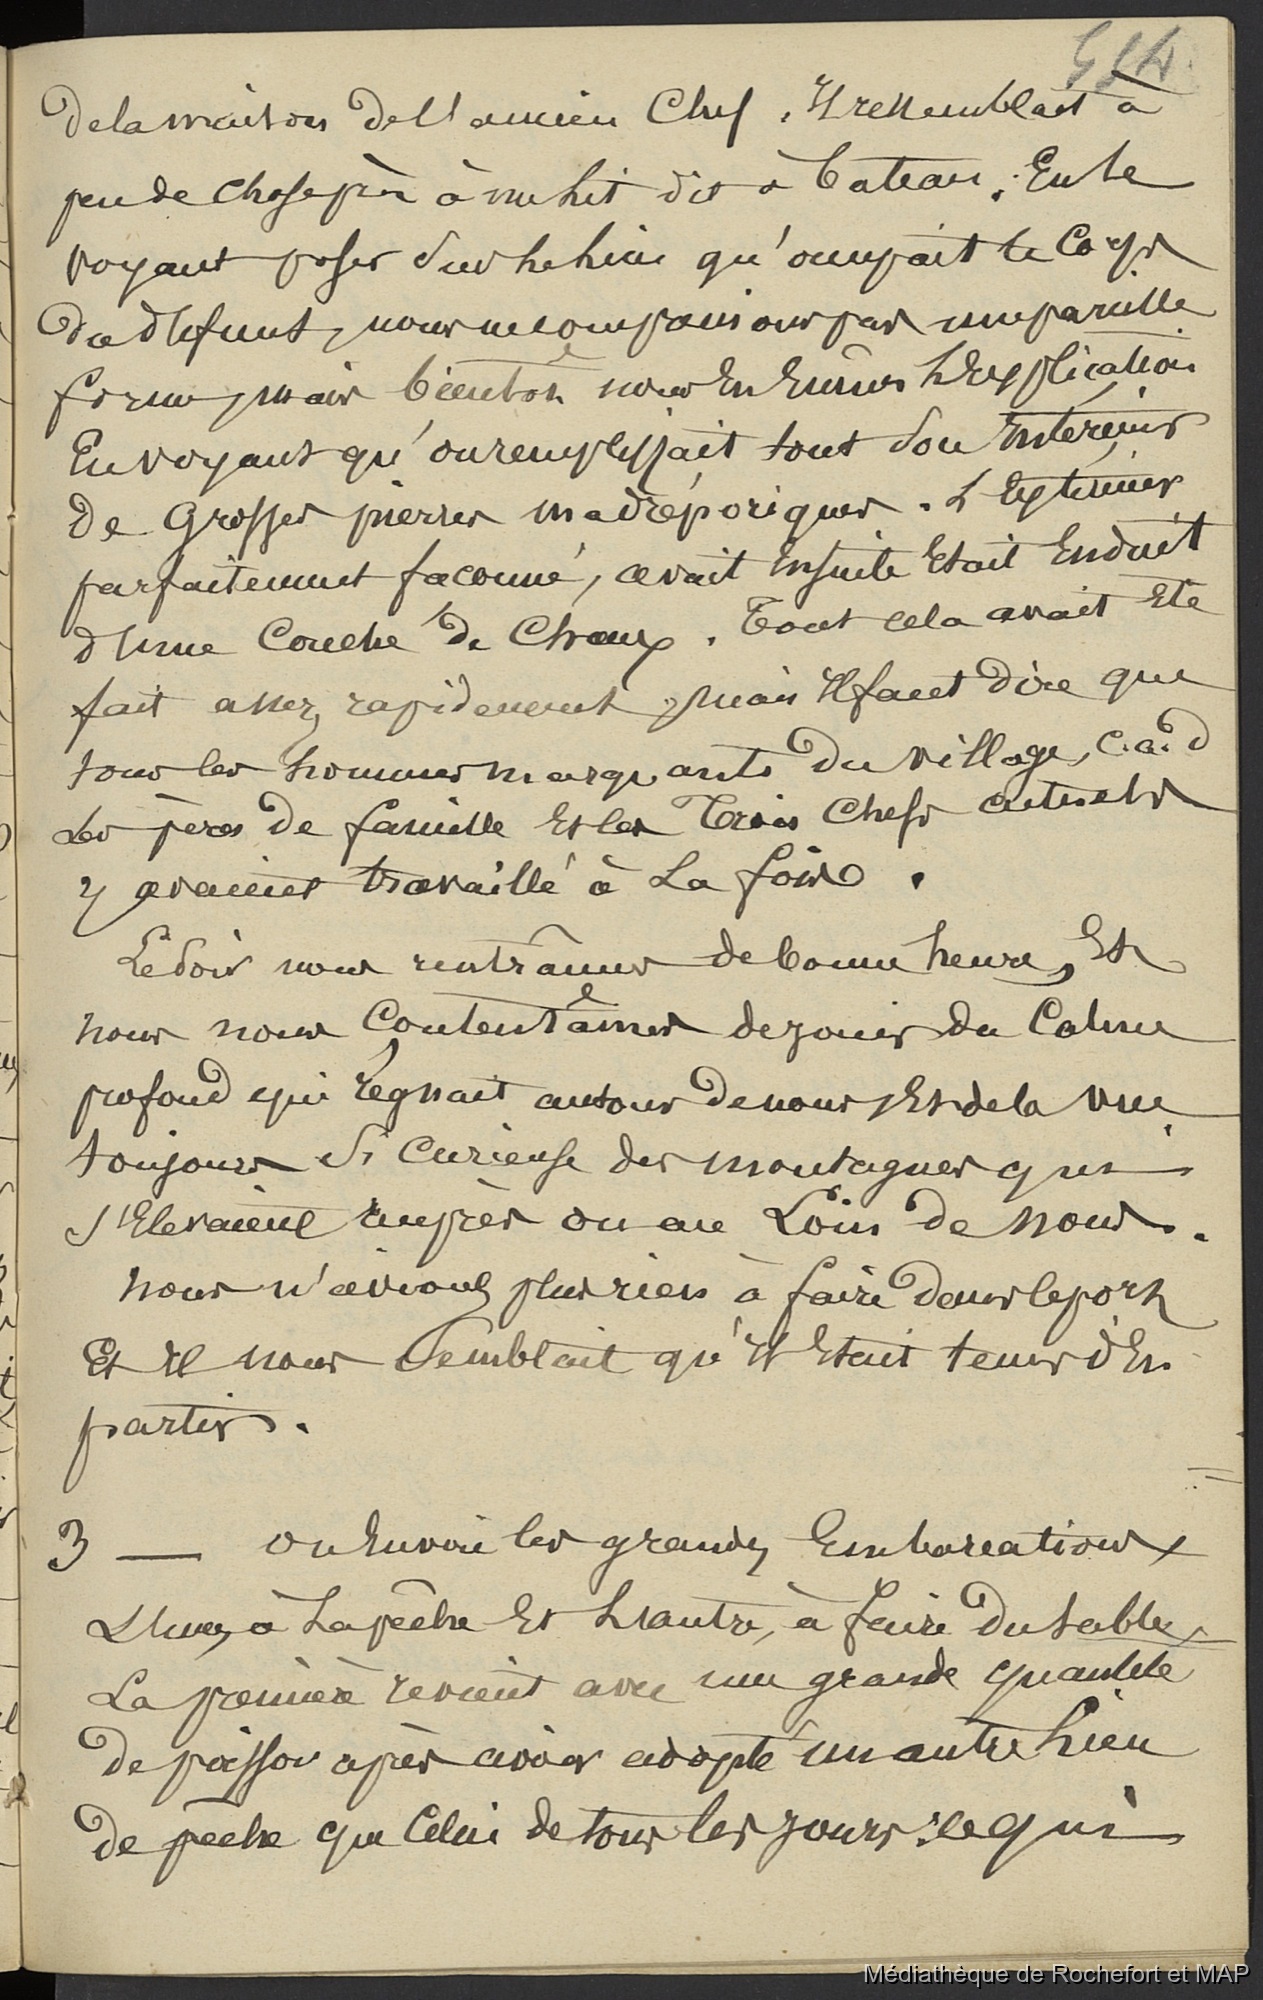 514
de la maison de l'ancien Chef. Il ressemblait à
peu de chose près à un lit dit à bateau. En le
voyant poser sur le lieu qu'occupait le Corps
du défunt, nous ne comprenions pas une pareille
forme, mais bientôt nous en eûmes l'Explication
En voyant qu'on remplissait tout son intérieur
de Grosses pierres madréporiques. L'Extérieur
parfaitement façonné, avait ensuite était Enduit
d'une Couche de Chaux. Tout cela avait été
fait assez rapidement, mais Il faut dire que
tous les hommes marquants du village, c.à.d
Les pères de famille et les Trois Chefs actuels
y avaient travaillé à La fois.
Le soir nous rentrâmes de bonne heure, Et
nous nous Contentâmes de jouir du Calme
profond qui régnait autour de nous, Et de la vue
toujours si Curieuse des montagnes qui
s'Elevaient auprès ou au Loin de nous.
Nous n'avions plus rien à faire dans le port
Et Il nous Semblait qu'Il Etait tems d'En
partir.
3 — on Envoie les grandes Embarcations
L'une, à La pêche Et L'autre, à faire du sable.
La première revient avec une grande quantité
de poisson après avoir adopté un autre Lieu
de pêche que Celui de tous les jours : ce qui
Médiathèque de Rochefort et MAP